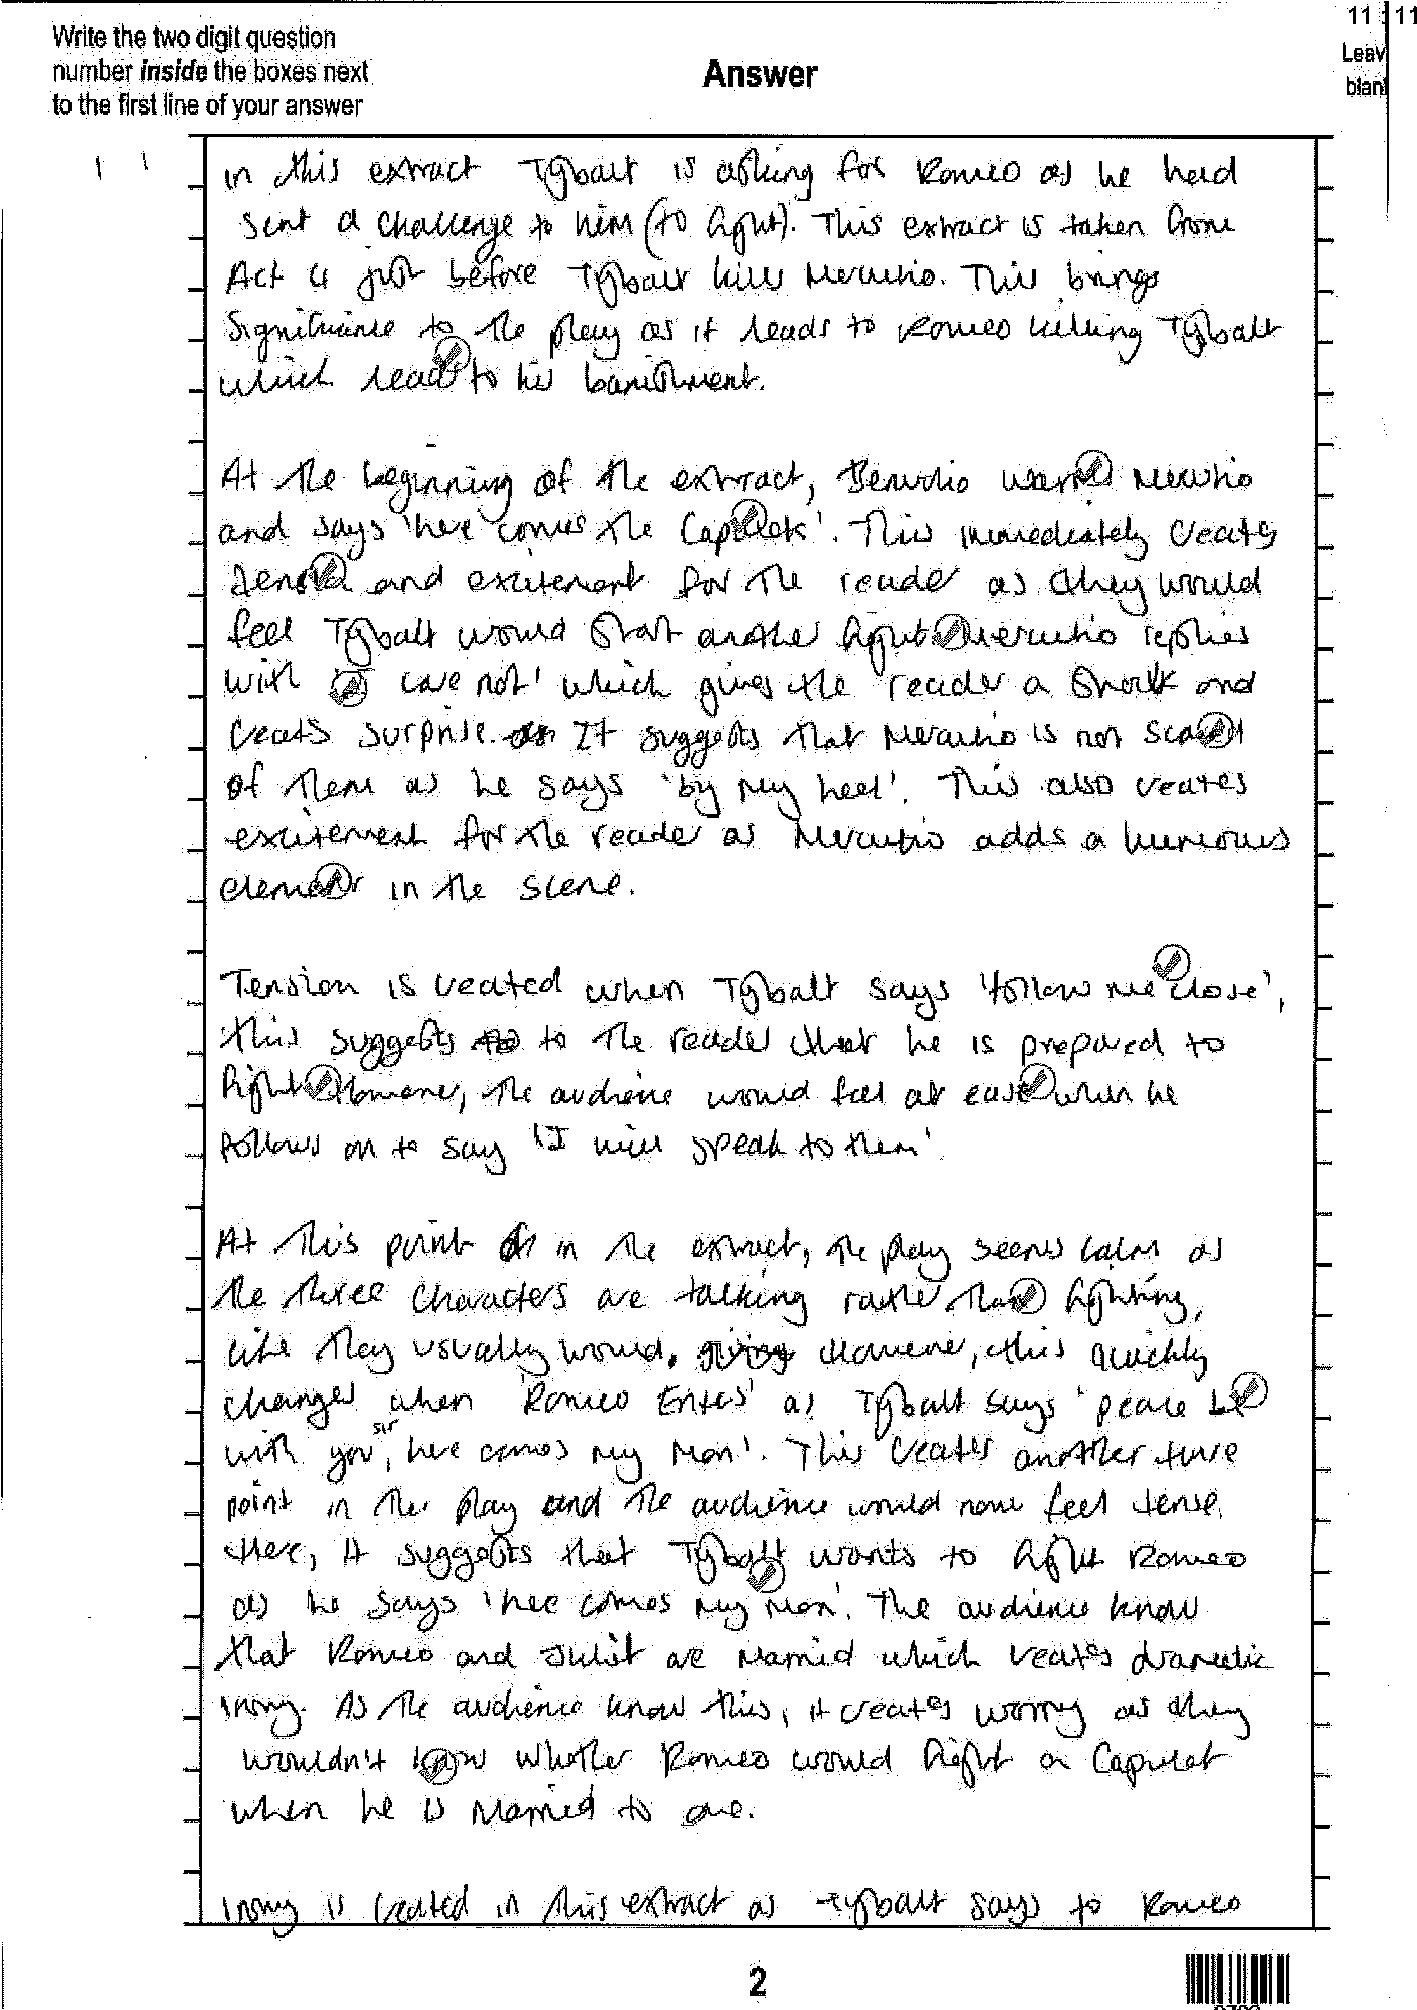 Write the two digit question
number inside the boxes next
to the first line of your answer
Answer
11 11
Leav
blan
1 1
in this extract Tybalt is asking for Romeo as he had
sent a challenge to him (to fight). This extract is taken from
Act 4 just before Tybalt kills Mercutio. This brings
significance to the play as it leads to Romeo killing Tybalt
which lead to his banishment.
At the beginning of the extract, Benvolio warns Mercutio
and says 'here comes the Capulets'. This immediately creates
tension and excitement for the reader as they would
feel Tybalt would start another fight. Mercutio replies
with 'I care not' which gives the reader a shock and
creats surprise. It suggests that Mercutio is not scared
of them as he says 'by my heel'. This also creates
excitement for the reader as Mercutio adds a humorous
element in the scene.
Tension is created when Tybalt says 'follow me close',
this suggests to the reader that he is prepared to
fight. However, the audience would feel at ease when he
follows on to say 'I will speak to them'
At this point in the extract, the play seems calm as
the three characters are talking rather than fighting,
like they usually would. However, this quickly
changes when 'Romeo Enters' as Tybalt says 'peace be
with you sir, here comes my man'. This creates another
point in the play and the audience would now feel tense.
Here, it suggests that Tybalt wants to fight Romeo
as he says 'here comes my man'. The audience know
that Romeo and Juliet are married which creates dramatic
irony. As the audience know this, it creates worry as they
wouldn't know whether Romeo would fight a Capulet
when he is married to one.
Irony is created in this extract as Tybalt says to Romeo
2